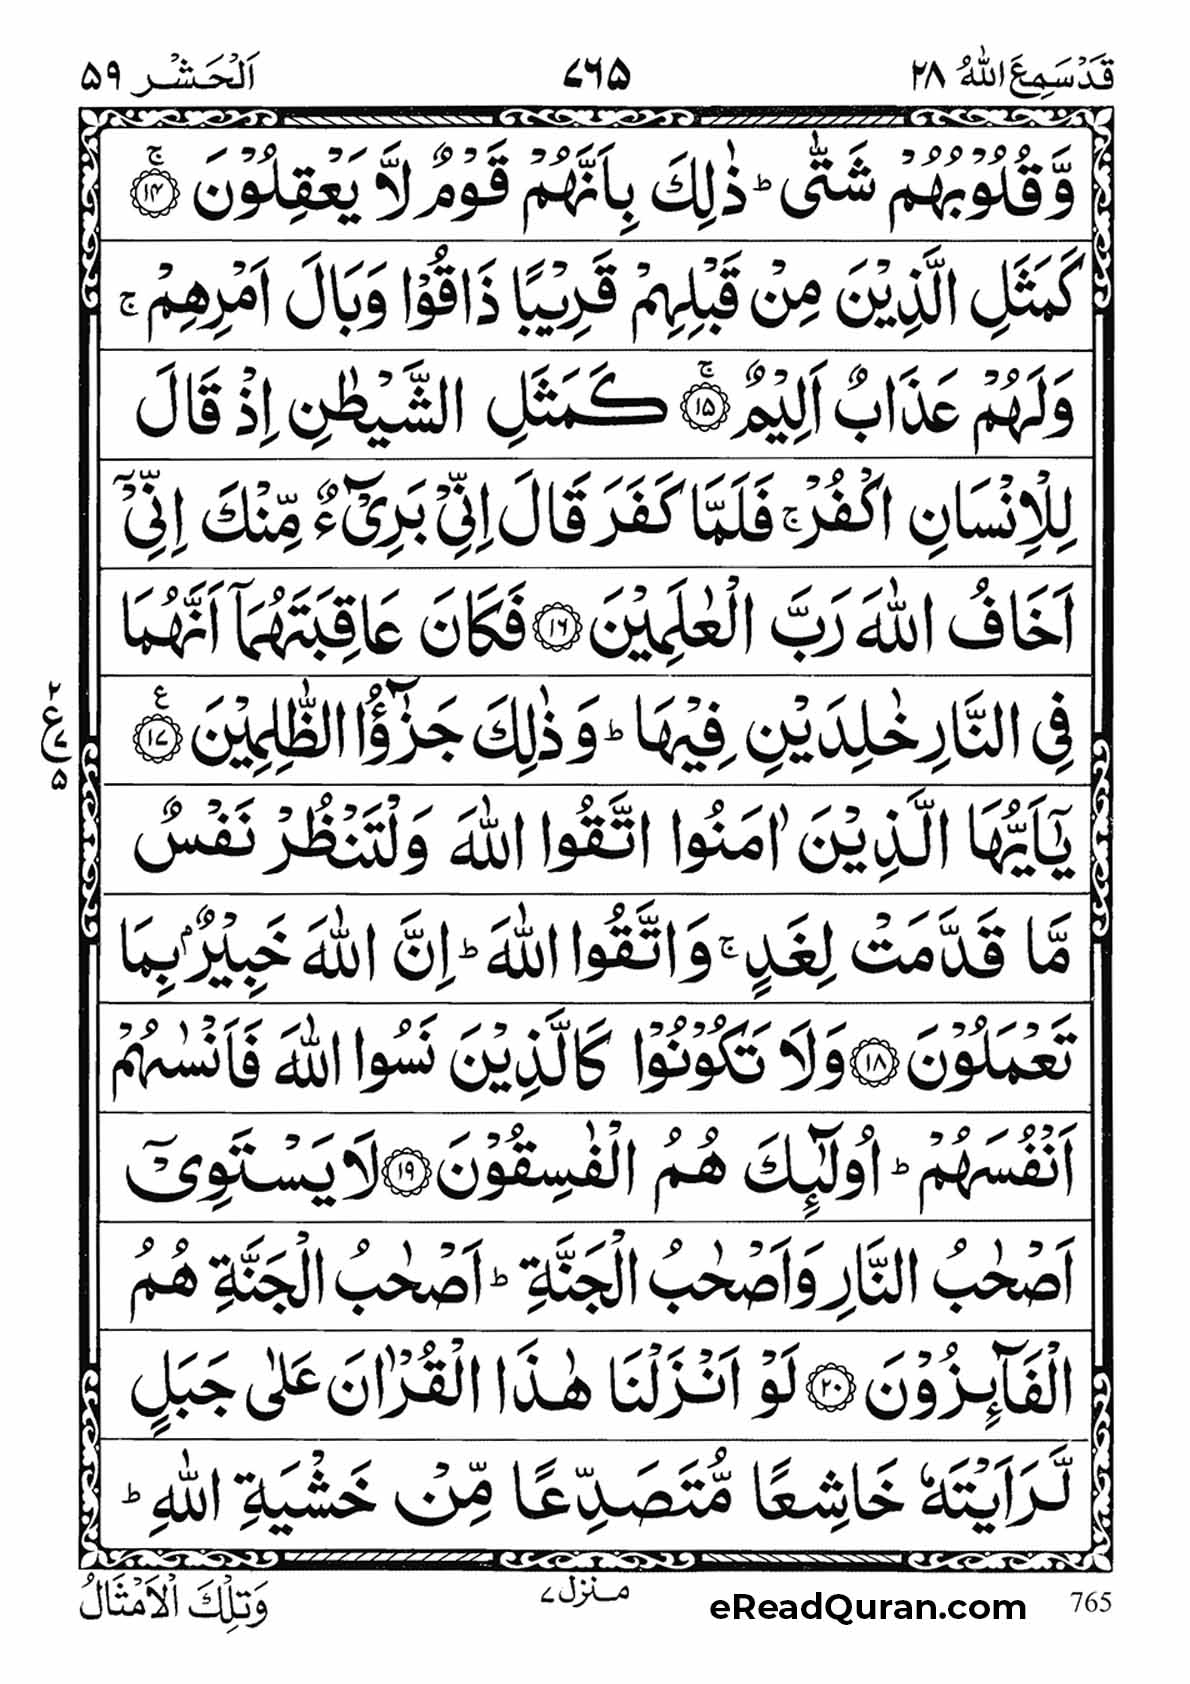 قَدْ سَمِعَ اللّٰهُ ٢٨ ٧٦٥ اَلْحَشْر ٥٩
وَّقُلُوْبُهُمْ شَتّٰى ؕ ذٰلِكَ بِاَنَّهُمْ قَوْمٌ لَّا يَعْقِلُوْنَ ۚ‏﴿۱۴﴾
كَمَثَلِ الَّذِيْنَ مِنْ قَبْلِهِمْ قَرِيْبًا ذَاقُوْا وَبَالَ اَمْرِهِمْ ۚ
وَلَهُمْ عَذَابٌ اَلِيْمٌ ۚ‏﴿۱۵﴾ كَمَثَلِ الشَّيْطٰنِ اِذْ قَالَ
لِلْاِنْسَانِ اكْفُرْ ۚ فَلَمَّا كَفَرَ قَالَ اِنِّىْ بَرِىْٓءٌ مِّنْكَ اِنِّىْۤ
اَخَافُ اللّٰهَ رَبَّ الْعٰلَمِيْنَ ‏﴿۱۶﴾ فَكَانَ عَاقِبَتَهُمَاۤ اَنَّهُمَا
فِى النَّارِ خٰلِدَيْنِ فِيْهَا ؕ وَ ذٰلِكَ جَزٰٓؤُا الظّٰلِمِيْنَ ‏﴿۱۷﴾ ع
٢
ع
٧
٥
يٰۤاَيُّهَا الَّذِيْنَ اٰمَنُوا اتَّقُوا اللّٰهَ وَلْتَنْظُرْ نَفْسٌ
مَّا قَدَّمَتْ لِغَدٍ ۚ وَاتَّقُوا اللّٰهَ ؕ اِنَّ اللّٰهَ خَبِيْرٌۢ بِمَا
تَعْمَلُوْنَ ‏﴿۱۸﴾ وَلَا تَكُوْنُوْا كَالَّذِيْنَ نَسُوا اللّٰهَ فَاَنْسٰٮهُمْ
اَنْفُسَهُمْ ؕ اُولٰٓٮِٕكَ هُمُ الْفٰسِقُوْنَ ‏﴿۱۹﴾ لَا يَسْتَوِىْۤ
اَصْحٰبُ النَّارِ وَاَصْحٰبُ الْجَنَّةِ ؕ اَصْحٰبُ الْجَنَّةِ هُمُ
الْفَآٮِٕزُوْنَ ‏﴿۲۰﴾ لَوْ اَنْزَلْنَا هٰذَا الْقُرْاٰنَ عَلٰى جَبَلٍ
لَّرَاَيْتَهٗ خَاشِعًا مُّتَصَدِّعًا مِّنْ خَشْيَةِ اللّٰهِ ؕ
وَتِلْكَ الْاَمْثَالُ
منزل ٧
eReadQuran.com
765